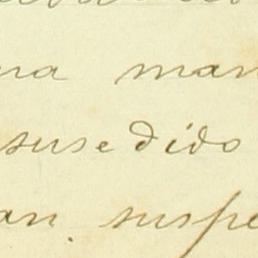 na man
susedido
an. suspe